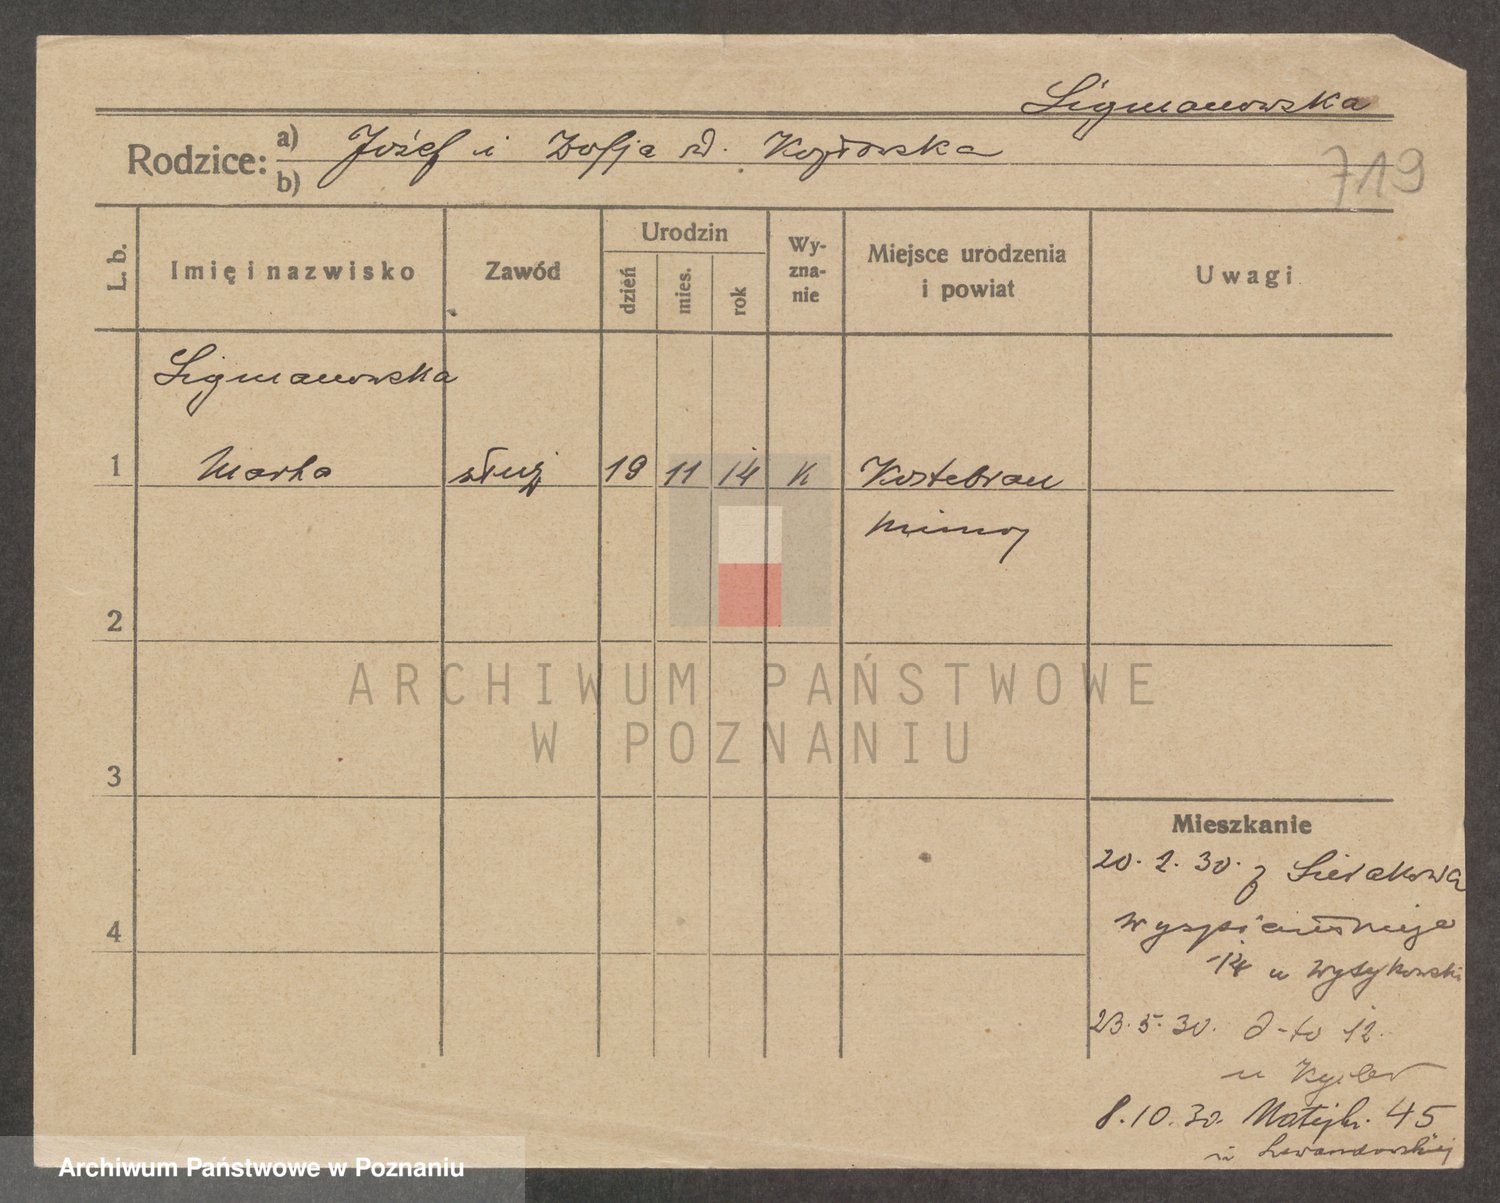 Ligmanowska
Rodzice: a) Józef i Zofja d. Kozłowska
b)
719
L. b.
Imię i nazwisko
Zawód
Urodzin
dzień
mies.
rok
Wy-
zna-
nie
Miejsce urodzenia
i powiat
Uwagi
Ligmanowska
1 Marta służ 19 11 14 K Kostebrau
2
3
4
ARCHIWUM PAŃSTWOWE
W POZNANIU
Mieszkanie
20. 2. 30. z Sierakowa
Wyspiańskiego
14 u
23. 5. 30. d-to 12.
u
8. 10. 30. Matejki. 45
u Lewandowskiej
Archiwum Państwowe w Poznaniu